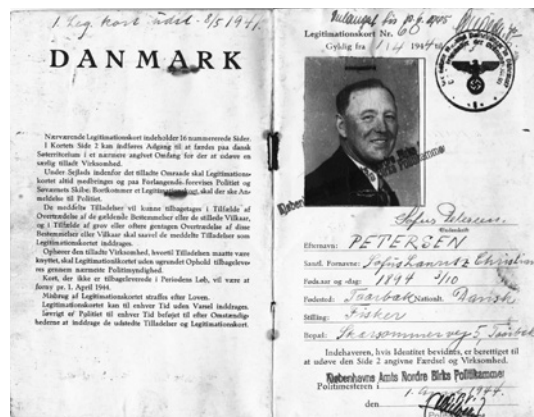 1. Leg. kort udst. 8/5 1941.
DANMARK
Nærværende Legitimationskort indeholder 16 nummererede Sider.
I Kortets Side 2 kan indføres Adgang til at færdes paa dansk
Søterritorium i et nærmere angivet Omfang for der at udøve en
særlig tilladt Virksomhed.
Under Sejlads indenfor det tilladte Omraade skal Legitimations-
kortet altid medbringes og paa Forlangende forevises Politiet og
Søværnets Skibe; Bortkommet et Legitimationskort, skal der ske An-
meldelse til Politiet.
De meddelte Tilladelser vil kunne tilbagetages i Tilfælde af
Overtrædelse af de gældende Bestemmelser eller de stillede Vilkaar,
og i Tilfælde af grov eller oftere gentagen Overtrædelse af disse
Bestemmelser eller Vilkaar skal saavel de meddelte Tilladelser som
Legitimationskortet inddrages.
Ophører den tilladte Virksomhed, hvortil Tilladelsen maatte være
knyttet, skal Legitimationskortet uden ugrundet Ophold tilbagleve-
res gennem nærmeste Politimyndighed.
Kort, der ikke er tilbageleverede i Periodens Løb, vil være at
forny pr. 1. April 1944.
Misbrug af Legitimationskortet straffes efter Loven.
Legitimationskortet kan til enhver Tid uden Varsel inddrages.
Iøvrigt er Politiet til enhver Tid beføjet til efter Omstændig-
hederne at inddrage de udstedte Tilladelser og Legitimationskort.
1945
Legitimationskort Nr. 60
Gyldig fra 1/4 1944 til
Københavns Amts Nordre Birks Politikammer
Sofus Petersen
Underskrift
Efternavn: PETERSEN
Samtl. Fornavne: Sofus Lauritz Christian
Føds.aar og -dag: 1894 3/10
Fødested: Taarbæk Nationalit. Dansk
Stilling: Fisker
Bopæl: Skarsommervej 5, Taarbæk
Indehaveren, hvis Identitet bevidnes, er berettiget til
at udøve den Side 2 angivne Færdsel og Virksomhed.
Københavns Amts Nordre Birks Politikammer
Politimesteren i
den 1. April 1944.